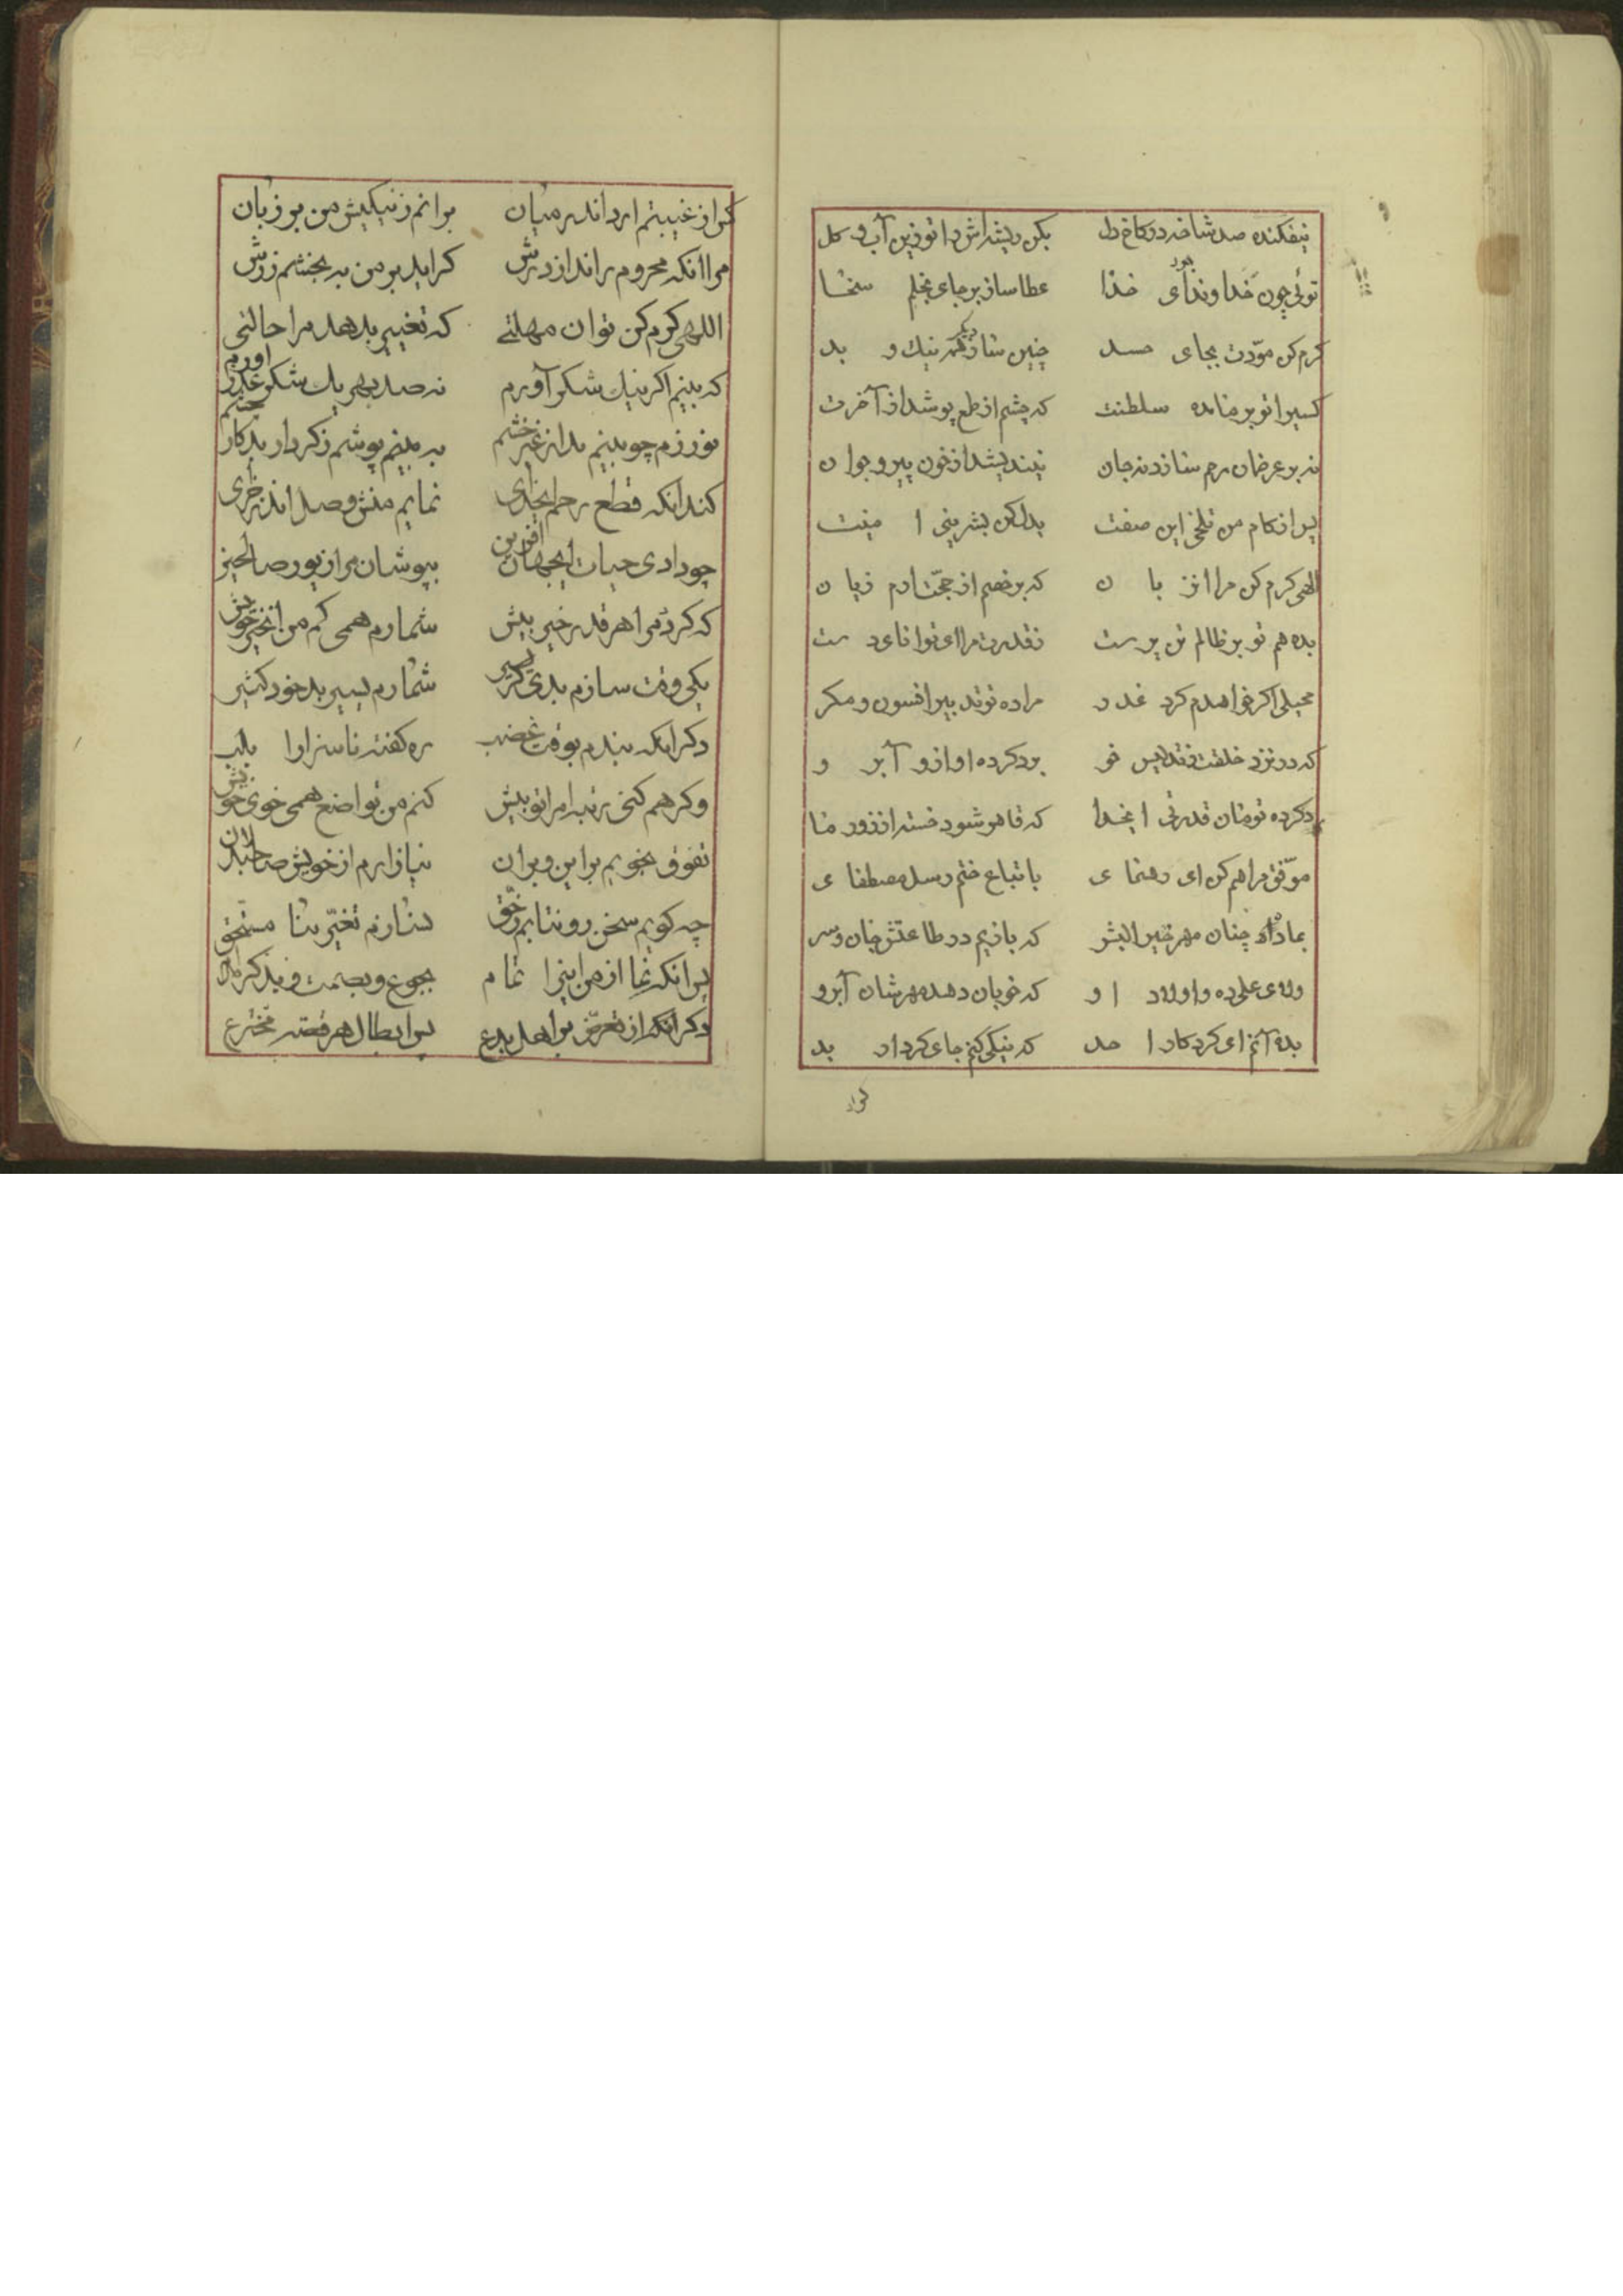 نیفکنده صد شاخه در کاخ دل بکن ریشه‌اش را تو زین آب و کل
توئی چون خداوند جود ای خدا عطا ساز بر جای بخلم سخا
کرم کن مودّت بجای حسد چنین ساز دیگر همه نیك و بد
کسیرا تو برمنا مده سلطنت که چشم از طمع پوشد از آخرت
نه بر عرضمان رحم سازد نه جان نیندیشد از خون پیر و جوان
پس از کام من تلخی این صفت بدل کن بشرینی
الهی کرم کن مرا انز با ن که بر خصم از حجّت ارم زیان
بده هم تو بر ظالم تن پرست ز قدرت مرا ای توانای دست
بحیلی اکر خواهدم کرد غدر مراده تو تدبیر افسون و مکر
که در نزد خلقت خو برد کرده او از و آبر و
دکر ده تو مان قدرتی ایخدا که قاهر شود خسته از زور ما
موّفق مرا هم کن ای رهنمای باتباع ختم رسل مصطفای
بما ده چنان مهر خیر البشر که بازیم در طاعتش جان و سر
ولای علی ده و اولاد او که خوبان دهد مهرشان آبرو
بده آنم ای کردکار احد که نیکی کنم جای کردار بد
کر از
کر از غیبتم ارد اندر میان برانم ز نیکیش من بر زبان
مرا انکه محروم راند از درش کر اید بر من به بخشم زرش
اللهی کرم کن توان مهلتی که تغییر بدهد مرا حالتی
که بینم اکر نیك شکر آورم نه صد بهر یك شکر عذر اورم
نورزم چو بینم بد از غیر خشم به بینم پوشم ز کردار بد کار چشم
کند انکه قطع رحم ایخدای نمایم منش وصل اندر خرای
چو دادی حیات ایجهان افرین بپوشان مرا زیور صالحین
که کرد مرا هر قدر خیر بیش شمارم همی کم من از خیر خویش
یکی وقت سازم بدی کر یسیر شمارم یسیر بد خود کثیر
دکر انکه بندم بوقت غضب ره کفته ناسزا را بلب
وکر هم کنی رتبه‌ام را تو بیش کنم من تواضع همی خوی خویش
تفوّق نجویم بر این و بر ان نیازارم از خویش صاحبدلان
چه کویم سخن رو نتابم ز حّق نسازم تغیّر بنا مستّحق
پس انکه نما از من اینرا تمام بجوع و بصمت و بذکر مدام
وکر انکه از تعرّض بر اهل بدع پس ابطال هر فتنه مخترع